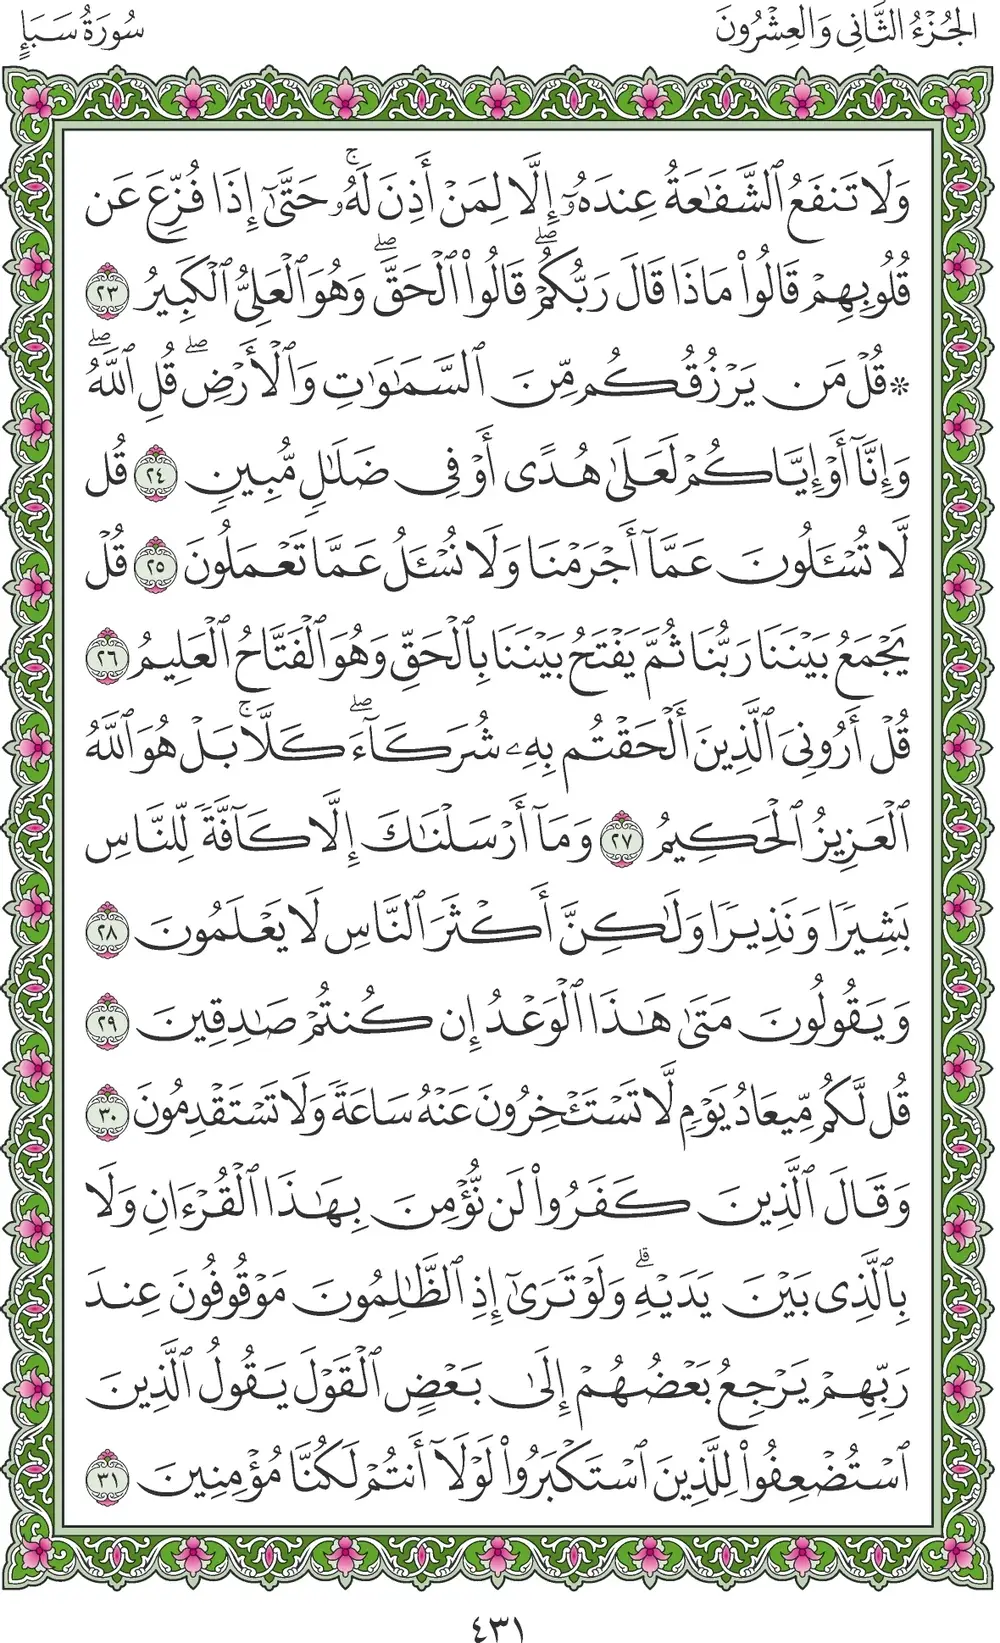 الجُزْءُ الثَّانِي وَالعِشْرُونَ
سُورَةُ سَبَإٍ
وَلَا تَنفَعُ ٱلشَّفَٰعَةُ عِندَهُۥٓ إِلَّا لِمَنۡ أَذِنَ لَهُۥۚ حَتَّىٰٓ إِذَا فُزِّعَ عَن
قُلُوبِهِمۡ قَالُواْ مَاذَا قَالَ رَبُّكُمۡۖ قَالُواْ ٱلۡحَقَّۖ وَهُوَ ٱلۡعَلِيُّ ٱلۡكَبِيرُ ٢٣
۞ قُلۡ مَن يَرۡزُقُكُم مِّنَ ٱلسَّمَٰوَٰتِ وَٱلۡأَرۡضِۖ قُلِ ٱللَّهُۖ
وَإِنَّآ أَوۡ إِيَّاكُمۡ لَعَلَىٰ هُدًى أَوۡ فِي ضَلَٰلٖ مُّبِينٖ ٢٤ قُل
لَّا تُسۡـَٔلُونَ عَمَّآ أَجۡرَمۡنَا وَلَا نُسۡـَٔلُ عَمَّا تَعۡمَلُونَ ٢٥ قُلۡ
يَجۡمَعُ بَيۡنَنَا رَبُّنَا ثُمَّ يَفۡتَحُ بَيۡنَنَا بِٱلۡحَقِّ وَهُوَ ٱلۡفَتَّاحُ ٱلۡعَلِيمُ ٢٦
قُلۡ أَرُونِيَ ٱلَّذِينَ أَلۡحَقۡتُم بِهِۦ شُرَكَآءَۖ كَلَّاۚ بَلۡ هُوَ ٱللَّهُ
ٱلۡعَزِيزُ ٱلۡحَكِيمُ ٢٧ وَمَآ أَرۡسَلۡنَٰكَ إِلَّا كَآفَّةٗ لِّلنَّاسِ
بَشِيرٗا وَنَذِيرٗا وَلَٰكِنَّ أَكۡثَرَ ٱلنَّاسِ لَا يَعۡلَمُونَ ٢٨
وَيَقُولُونَ مَتَىٰ هَٰذَا ٱلۡوَعۡدُ إِن كُنتُمۡ صَٰدِقِينَ ٢٩
قُل لَّكُم مِّيعَادُ يَوۡمٖ لَّا تَسۡتَـٔۡخِرُونَ عَنۡهُ سَاعَةٗ وَلَا تَسۡتَقۡدِمُونَ ٣٠
وَقَالَ ٱلَّذِينَ كَفَرُواْ لَن نُّؤۡمِنَ بِهَٰذَا ٱلۡقُرۡءَانِ وَلَا
بِٱلَّذِي بَيۡنَ يَدَيۡهِۗ وَلَوۡ تَرَىٰٓ إِذِ ٱلظَّٰلِمُونَ مَوۡقُوفُونَ عِندَ
رَبِّهِمۡ يَرۡجِعُ بَعۡضُهُمۡ إِلَىٰ بَعۡضٍ ٱلۡقَوۡلَ يَقُولُ ٱلَّذِينَ
ٱسۡتُضۡعِفُواْ لِلَّذِينَ ٱسۡتَكۡبَرُواْ لَوۡلَآ أَنتُمۡ لَكُنَّا مُؤۡمِنِينَ ٣١
٤٣١